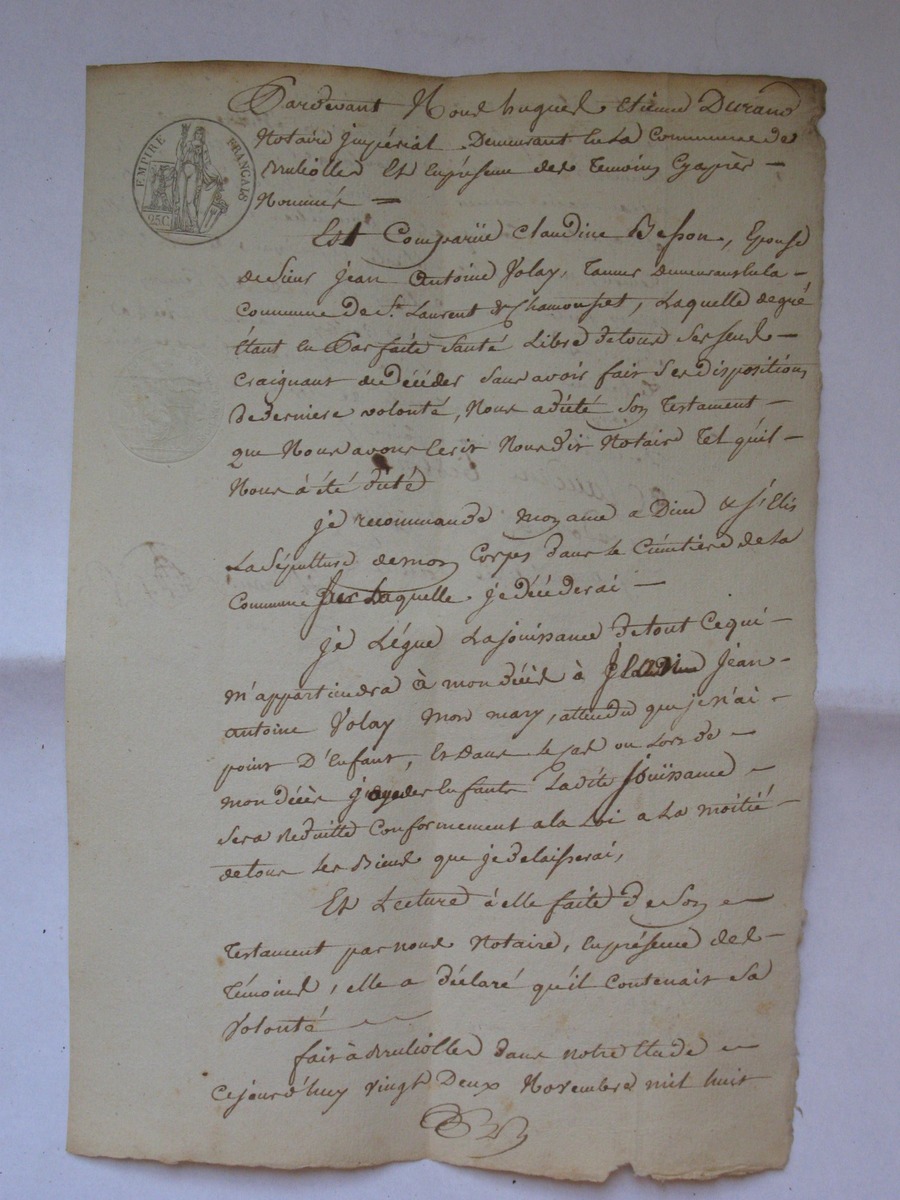 EMPIRE FRANÇAIS
25C
Pardevant Nous hugues Etienne Durand
Notaire jmpérial Demeurant En La Commune de
Bruliolles Et Enpresence des Temoins Cyaprès
Nommés
Est Comparüe Claudine Besson, Epouse
de Sieur jean Antoine Volay, Tanneur Demeurans En la
Commune De St. Laurent de Chamousset, Laquelle de gré
Etant En Parfaite Santé Libre de tous Ses Sens
Craignant de Décéder Sans avoir fait Ses Dispositions
De Derniere volonté, Nous a dicté Son Testament
que Nous avons Ecrit Nous dit Notaire Tel qu'il
Nous à été dicté
je recommande mon ame a Dieu & j'Elis
La Sépulture de mon Corps dans le Cimetière de la
Commune Sur Laquelle je décéderai
je Légue La jouissance de tout Cequi
m'appartiendra à mon décès à Jean
antoine Volay mon mary, attendu que je n'ai
point D'Enfant, Et Dans le Cas ou Lors de
mon décès j'aye des Enfants La dite jouissance
Sera Reduitte Conformement a la Loi a La moitié
de tous Les Biens que je delaisserai,
Et Lecture à elle faite de Son
Testament par nous Notaire, Enpresence des
Témoins, elle a déclaré qu'il Contenait Sa
Volonté
fait à Bruliolles Dans notre Etude
Cejourd'huy vingt Deux Novembre mil huit